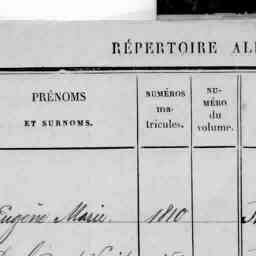 RÉPERTOIRE AL
PRÉNOMS
ET SURNOMS.
NUMÉROS
ma-
tricules.
NU-
MÉRO
du
volume.
Eugène Marie. 1810